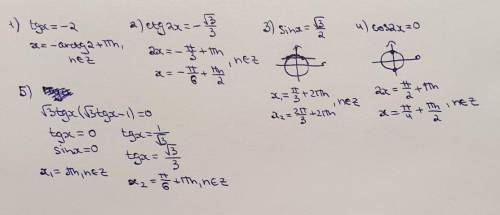 1) tgx = -2
x = -arctg2 + πn, n∈Z
2) ctg2x = -√3/3
2x = -π/3 + πn
x = -π/6 + πn/2, n∈Z
3) sinx = √3/2
x₁ = π/3 + 2πn
x₂ = 2π/3 + 2πn, n∈Z
4) cos2x = 0
2x = π/2 + πn
x = π/4 + πn/2, n∈Z
5)
√3tgx(√3tgx-1) = 0
tgx = 0 tgx = 1/√3
sinx = 0 tgx = √3/3
x₁ = πn, n∈Z x₂ = π/6 + πn, n∈Z